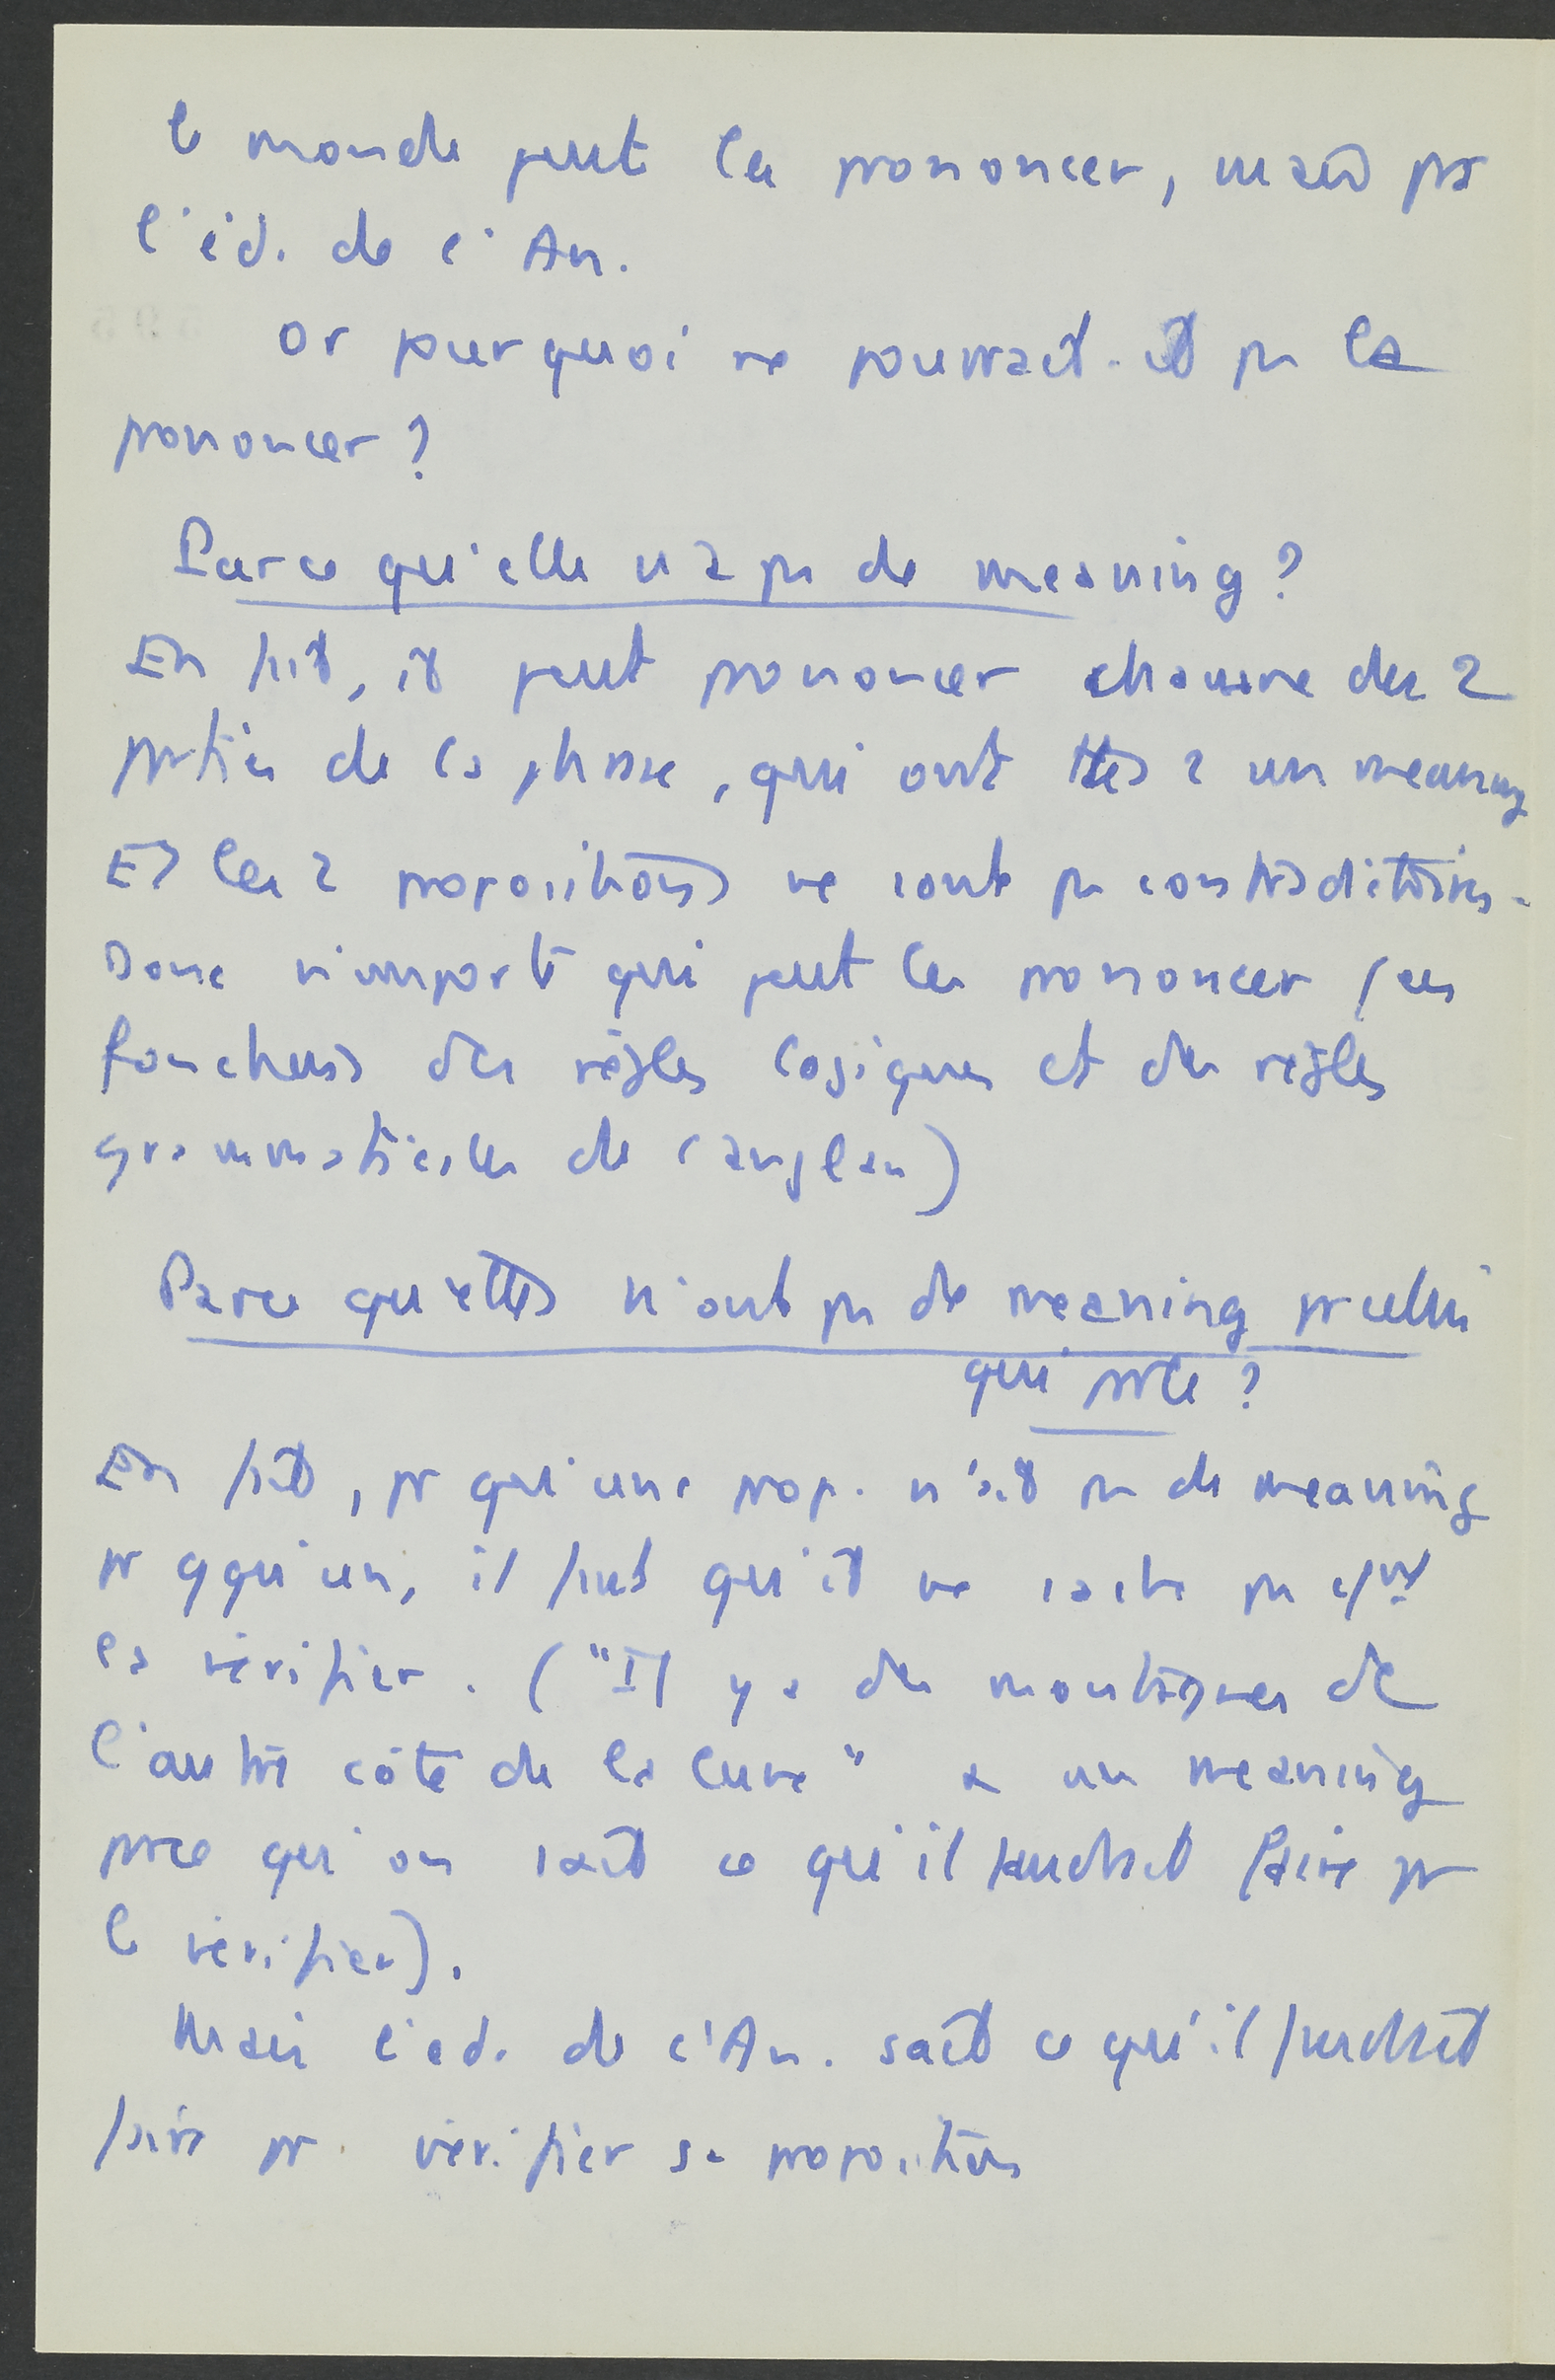 le monde peut la prononcer, mais pas
l'éd. de l'An.
Or pourquoi ne pourrait-il pas la
prononcer ?
Parce qu'elle n'a pas de meaning ?
En fait, il peut prononcer chacune des 2
parties de la phrase, qui ont ttes 2 un meaning
Et les 2 propositions ne sont pas contradictoires.
Donc n'importe qui peut les prononcer (en
fonction des règles logiques et des règles
grammaticales de l'anglais)
Parce qu'elles n'ont pas de meaning pr celui
qui parle ?
En fait, pr qu'une prop. n'ait pas de meaning
pr qqu'un, il faut qu'il ne sache pas
la vérifier. ("Il y a des montagnes de
l'autre côté de la lune" a un meaning
parce qu'on sait ce qu'il faudrait faire pr
le vérifier).
Mais l'éd. de l'An. sait ce qu'il faudrait
faire pr vérifier sa proposition